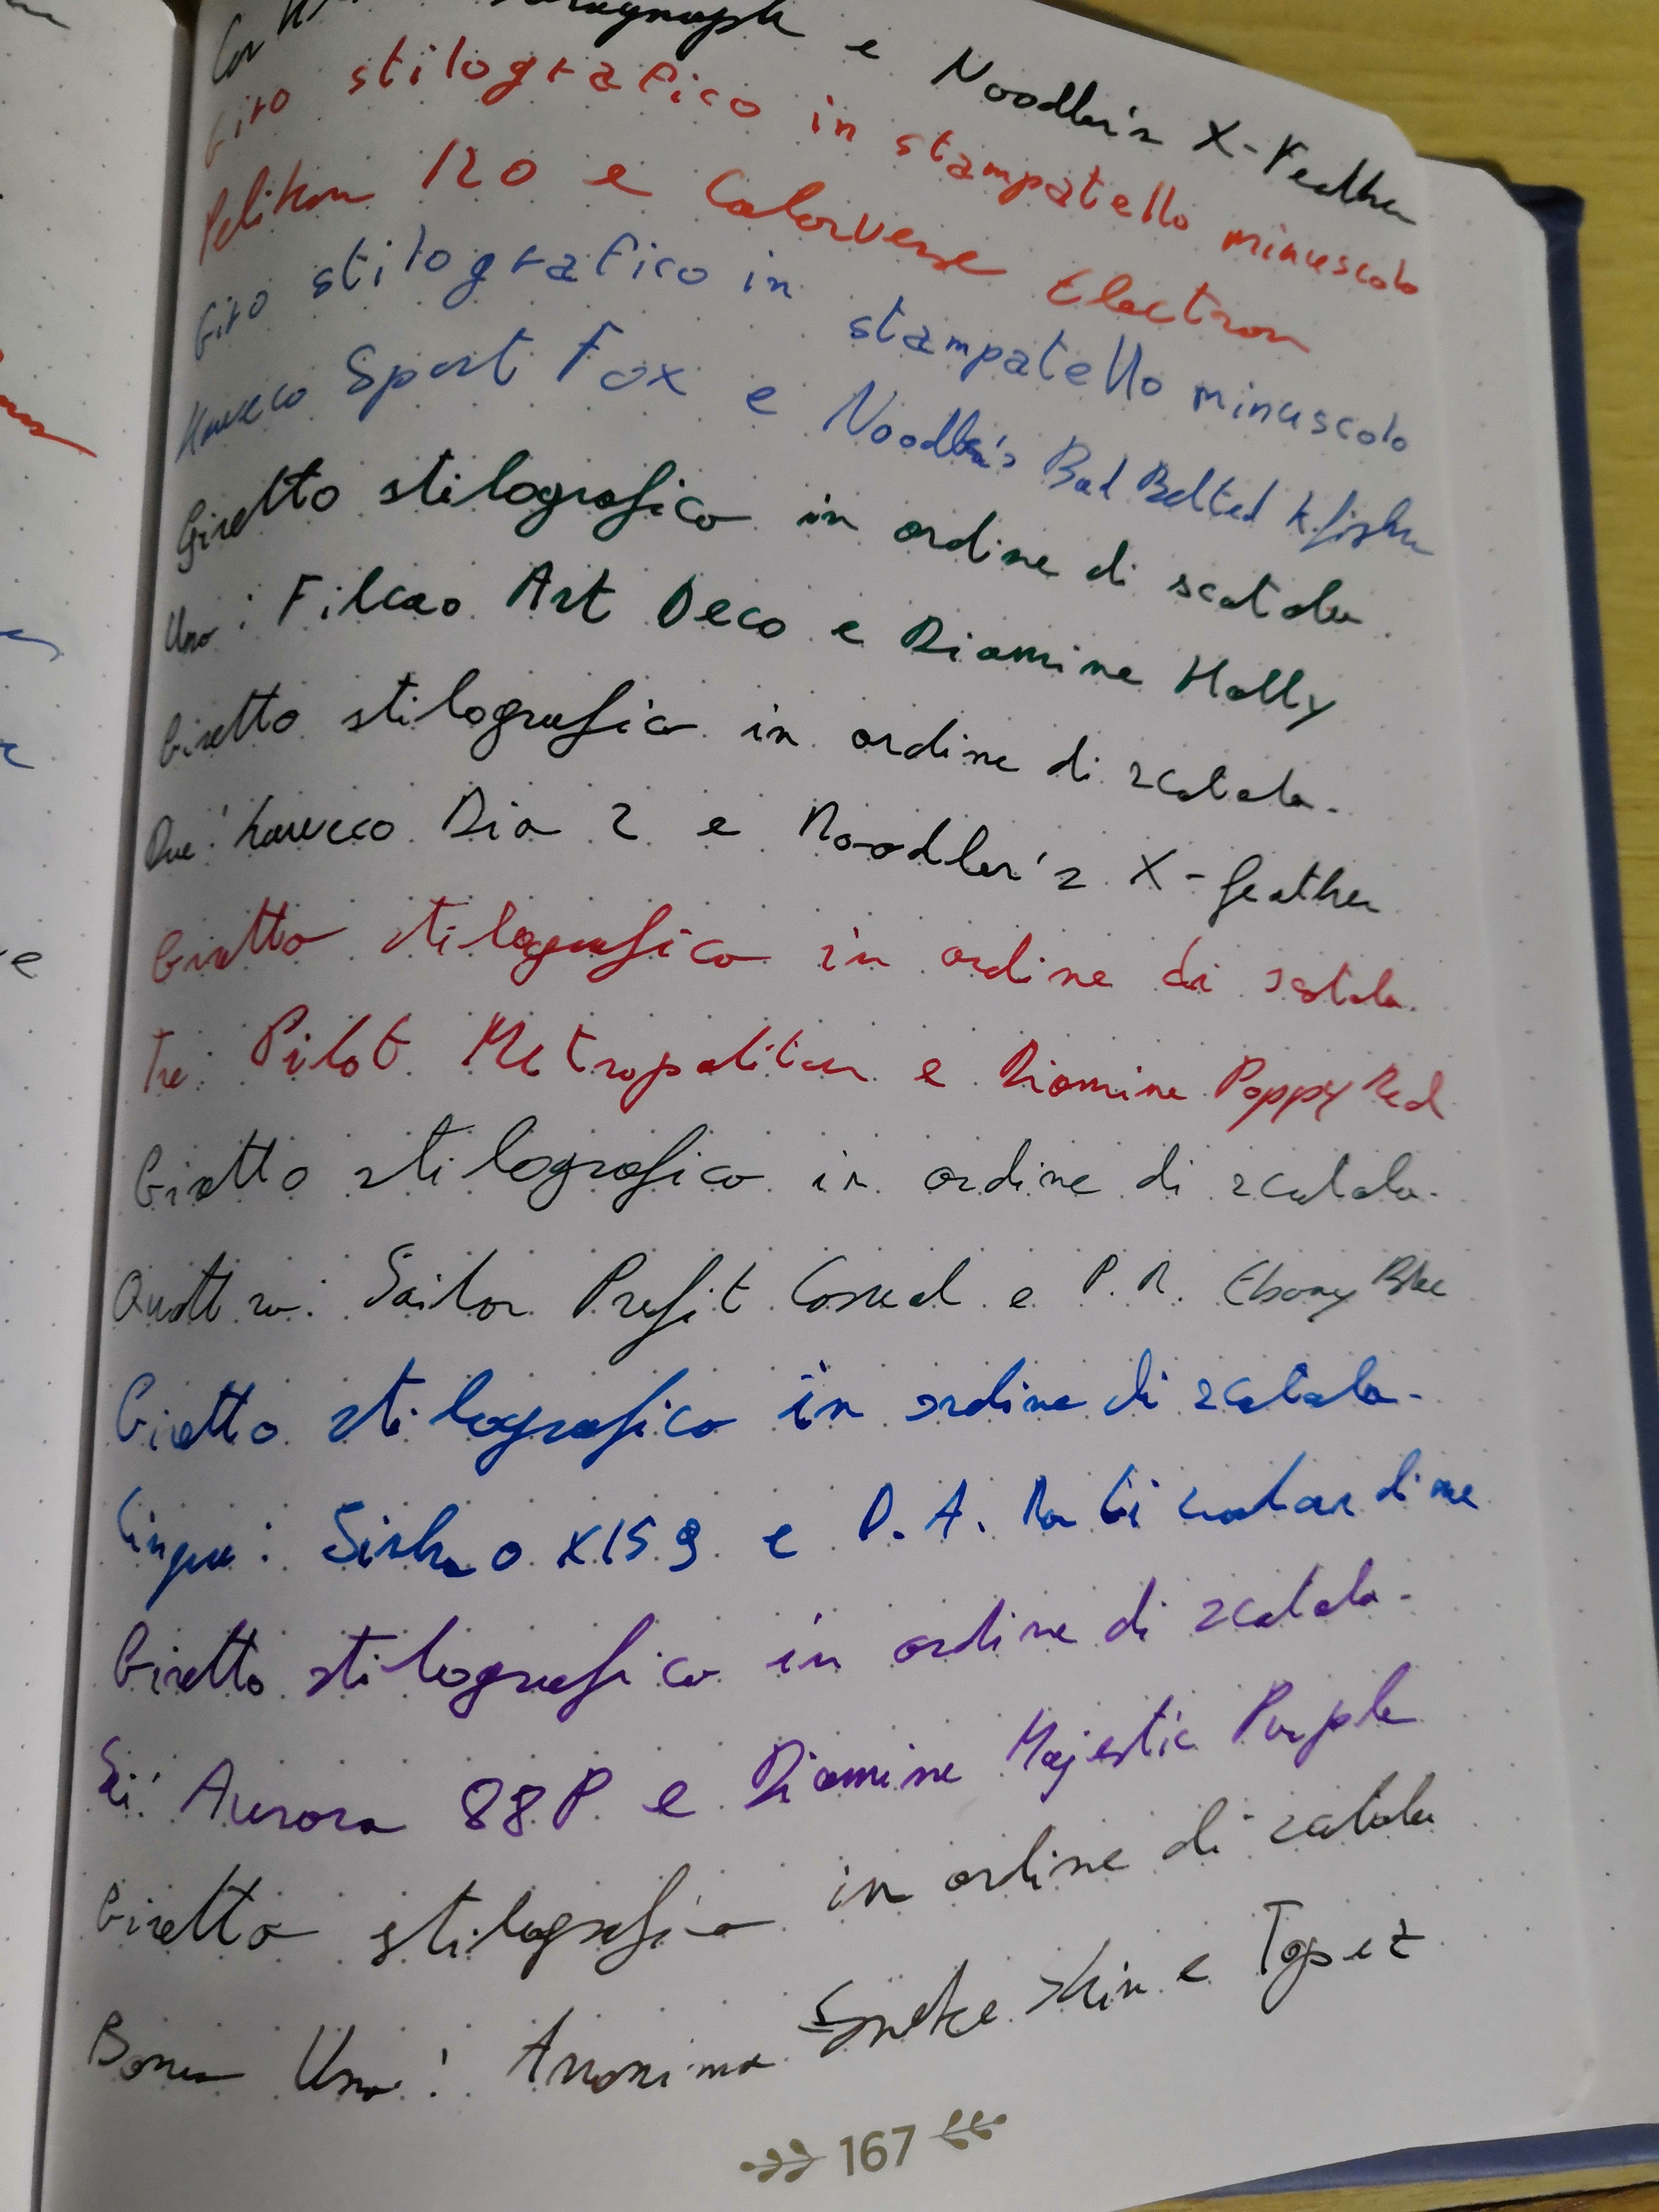 e Noodler's X-Feather
Giro stilografico in stampatello minuscolo
Pelikan 120 e Colorverse Electron
Giro stilografico in stampatello minuscolo
Kaweco Sport Fox e Noodler's Bad Belted K.fisher
Giretto stilografico in ordine di scatola.
Uno: Filcao Art Deco e Diamine Holly
Giretto stilografico in ordine di scatola.
Due: Kaweco Dia 2 e Noodler's X-feather
Giretto stilografico in ordine di scatola.
Tre: Pilot Metropolitan e Diamine Poppy Red
Giretto stilografico in ordine di scatola.
Quattro: Sailor Profit Casual e P.R. Ebony Blue
Giretto stilografico in ordine di scatola.
Cinque: e
Giretto stilografico in ordine di scatola.
Sei: Aurora 88P e Diamine Majestic Purple
Giretto stilografico in ordine di scatola
Bonus Uno: Anonima Snake Skin e
167